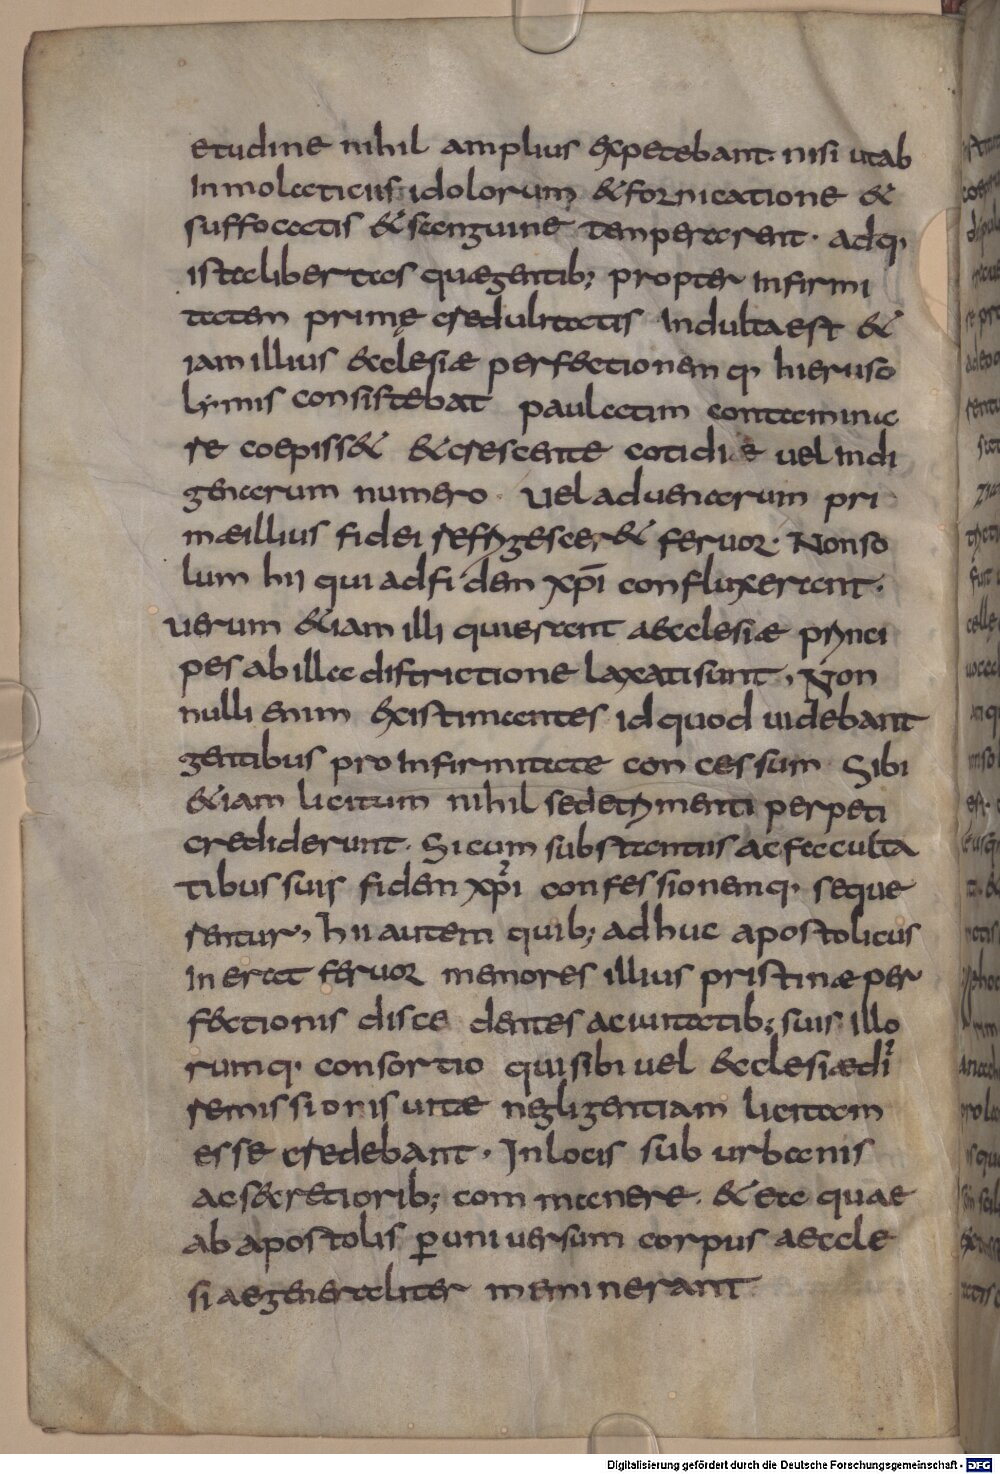 etudine nihil amplius expetebant. nisi utab
Inmolaticiis idolorum & fornicatione &
suffocatis & sanguine temperarent. adq,
istalibertas quægentib; propter Infirmi
tatem prime credulitatis Indulta est &
iam illius &clesiæ perfectionem q, hieruso
lymis consistebat paulatim contamina
re coepiss& & crescente cotidie uel Indi
genarum numero. Uel aduenarum pri
mæillius fidei refrigescer& feruor. Nonso
lum hii qui adfidem xp̄i confluxerant.
uerum &iam illi quierant aecclesiæ princi
pes ab illa districtione laxati sunt, Non
nulli enim existimantes id quod uidebant
gentibus pro Infirmitate concessum Sibi
&iam licitum nihil sedetrimenti perpeti
crediderunt. Si cum substantiis ac faculta
tibus suis fidem xp̄i confessionemq, seque
rentur, hii autem quib; adhuc apostolicus
Inerat feruor memores illius pristinæ per
fectionis discedentes aciuitatib; suis illo
rumq, consortio qui sibi uel &cclesiædi
remissionis uitæ negligentiam licitam
esse credebant. In locis sub urbanis
ac s&cretiorib; com manere. & ea quae
ab apostolis ꝑ uniuersum corpus aeccle
siae generaliter meminerant
Digitalisierung gefördert durch die Deutsche Forschungsgemeinschaft - DFG